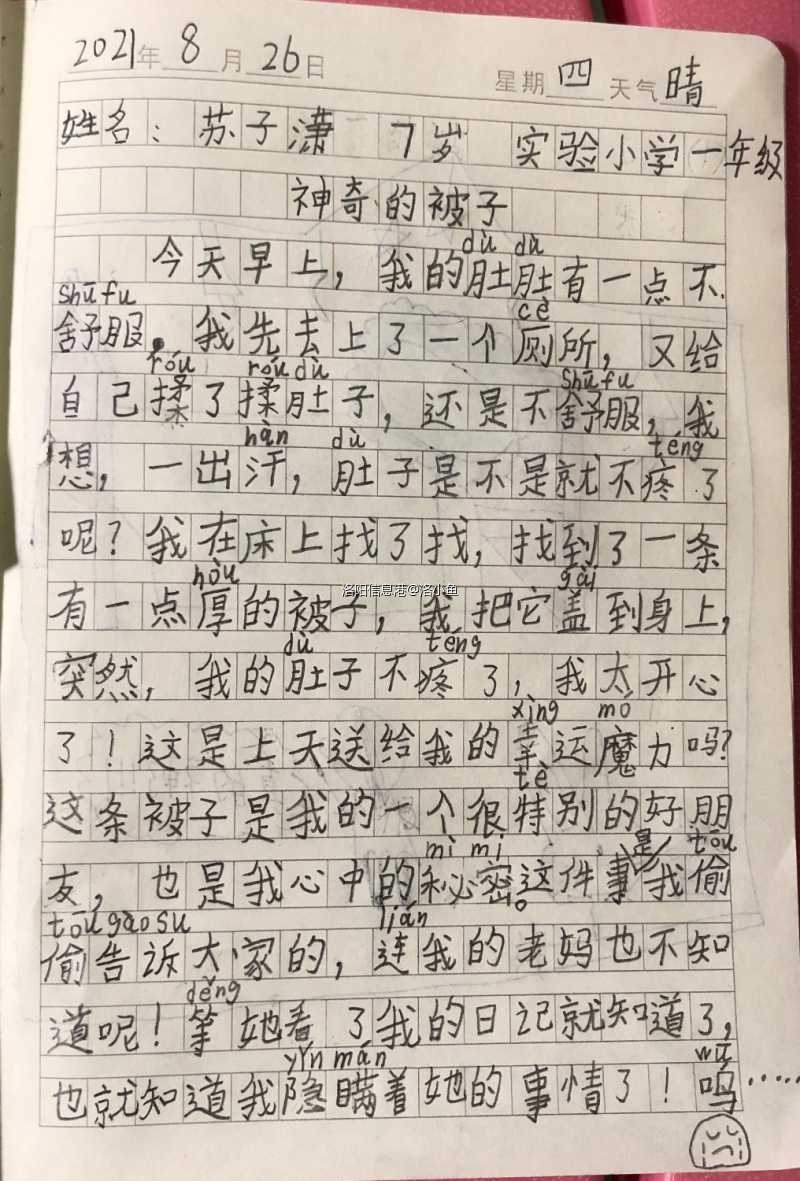 2021年 8 月 26日
星期 四 天气 晴
姓名：苏子潇 7岁 实验小学一年级
神奇的被子
dù dù
今天早上，我的肚肚有一点不
shū fu cè
舒服。我先去上了一个厕所，又给
róu róu dù shū fu
自己揉了揉肚子，还是不舒服，我
hàn dù téng
想，一出汗，肚子是不是就不疼了
呢？我在床上找了找，找到了一条
hòu gài
有一点厚的被子，我把它盖到身上，
洛阳信息港@洛小鱼
dù téng
突然，我的肚子不疼了，我太开心
xìng mó
了！这是上天送给我的幸运魔力吗？
tè
这条被子是我的一个很特别的好朋
mì mì 是 tōu
友，也是我心中的秘密。这件事我偷
tōu gào su lián
偷告诉大家的，连我的老妈也不知
děng
道呢！等她看了我的日记就知道了，
yǐn mán wū
也就知道我隐瞒着她的事情了！呜……